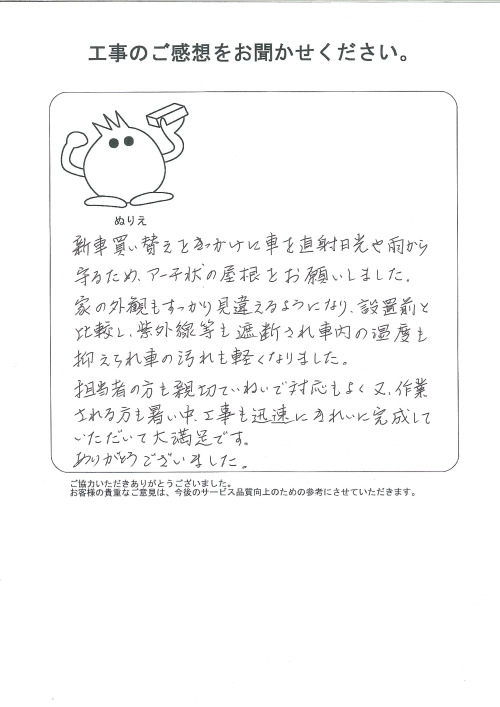 工事のご感想をお聞かせください。
ぬりえ
新車買い替えをきっかけに車を直射日光や雨から
守るため、アーチ状の屋根をお願いしました。
家の外観もすっかり見違えるようになり、設置前と
比較し、紫外線等も遮断され車内の温度も
抑えられ車の汚れも軽くなりました。
担当者の方も親切ていねいで対応もよく又、作業
される方も暑い中、工事も迅速にきれいに完成して
いただいて大満足です。
ありがとうございました。
ご協力いただきありがとうございました。
お客様の貴重なご意見は、今後のサービス品質向上のための参考にさせていただきます。